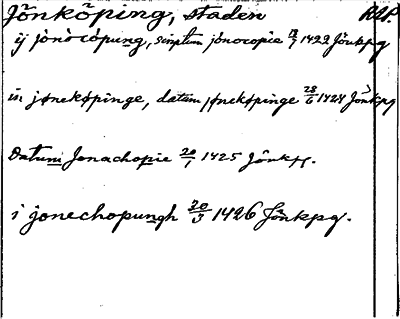 Jönköping, staden RAP.
ij jònòcòpung, scriptum jònocopie 12/7 1422 Jönkpg
in jønekøpinge, datum jønekøpinge 28/6 1424 Jönkpg
Datum Jonachopie 20/1 1425 Jönkp.
i jonechopungh 20/3 1426 Jönkpg.